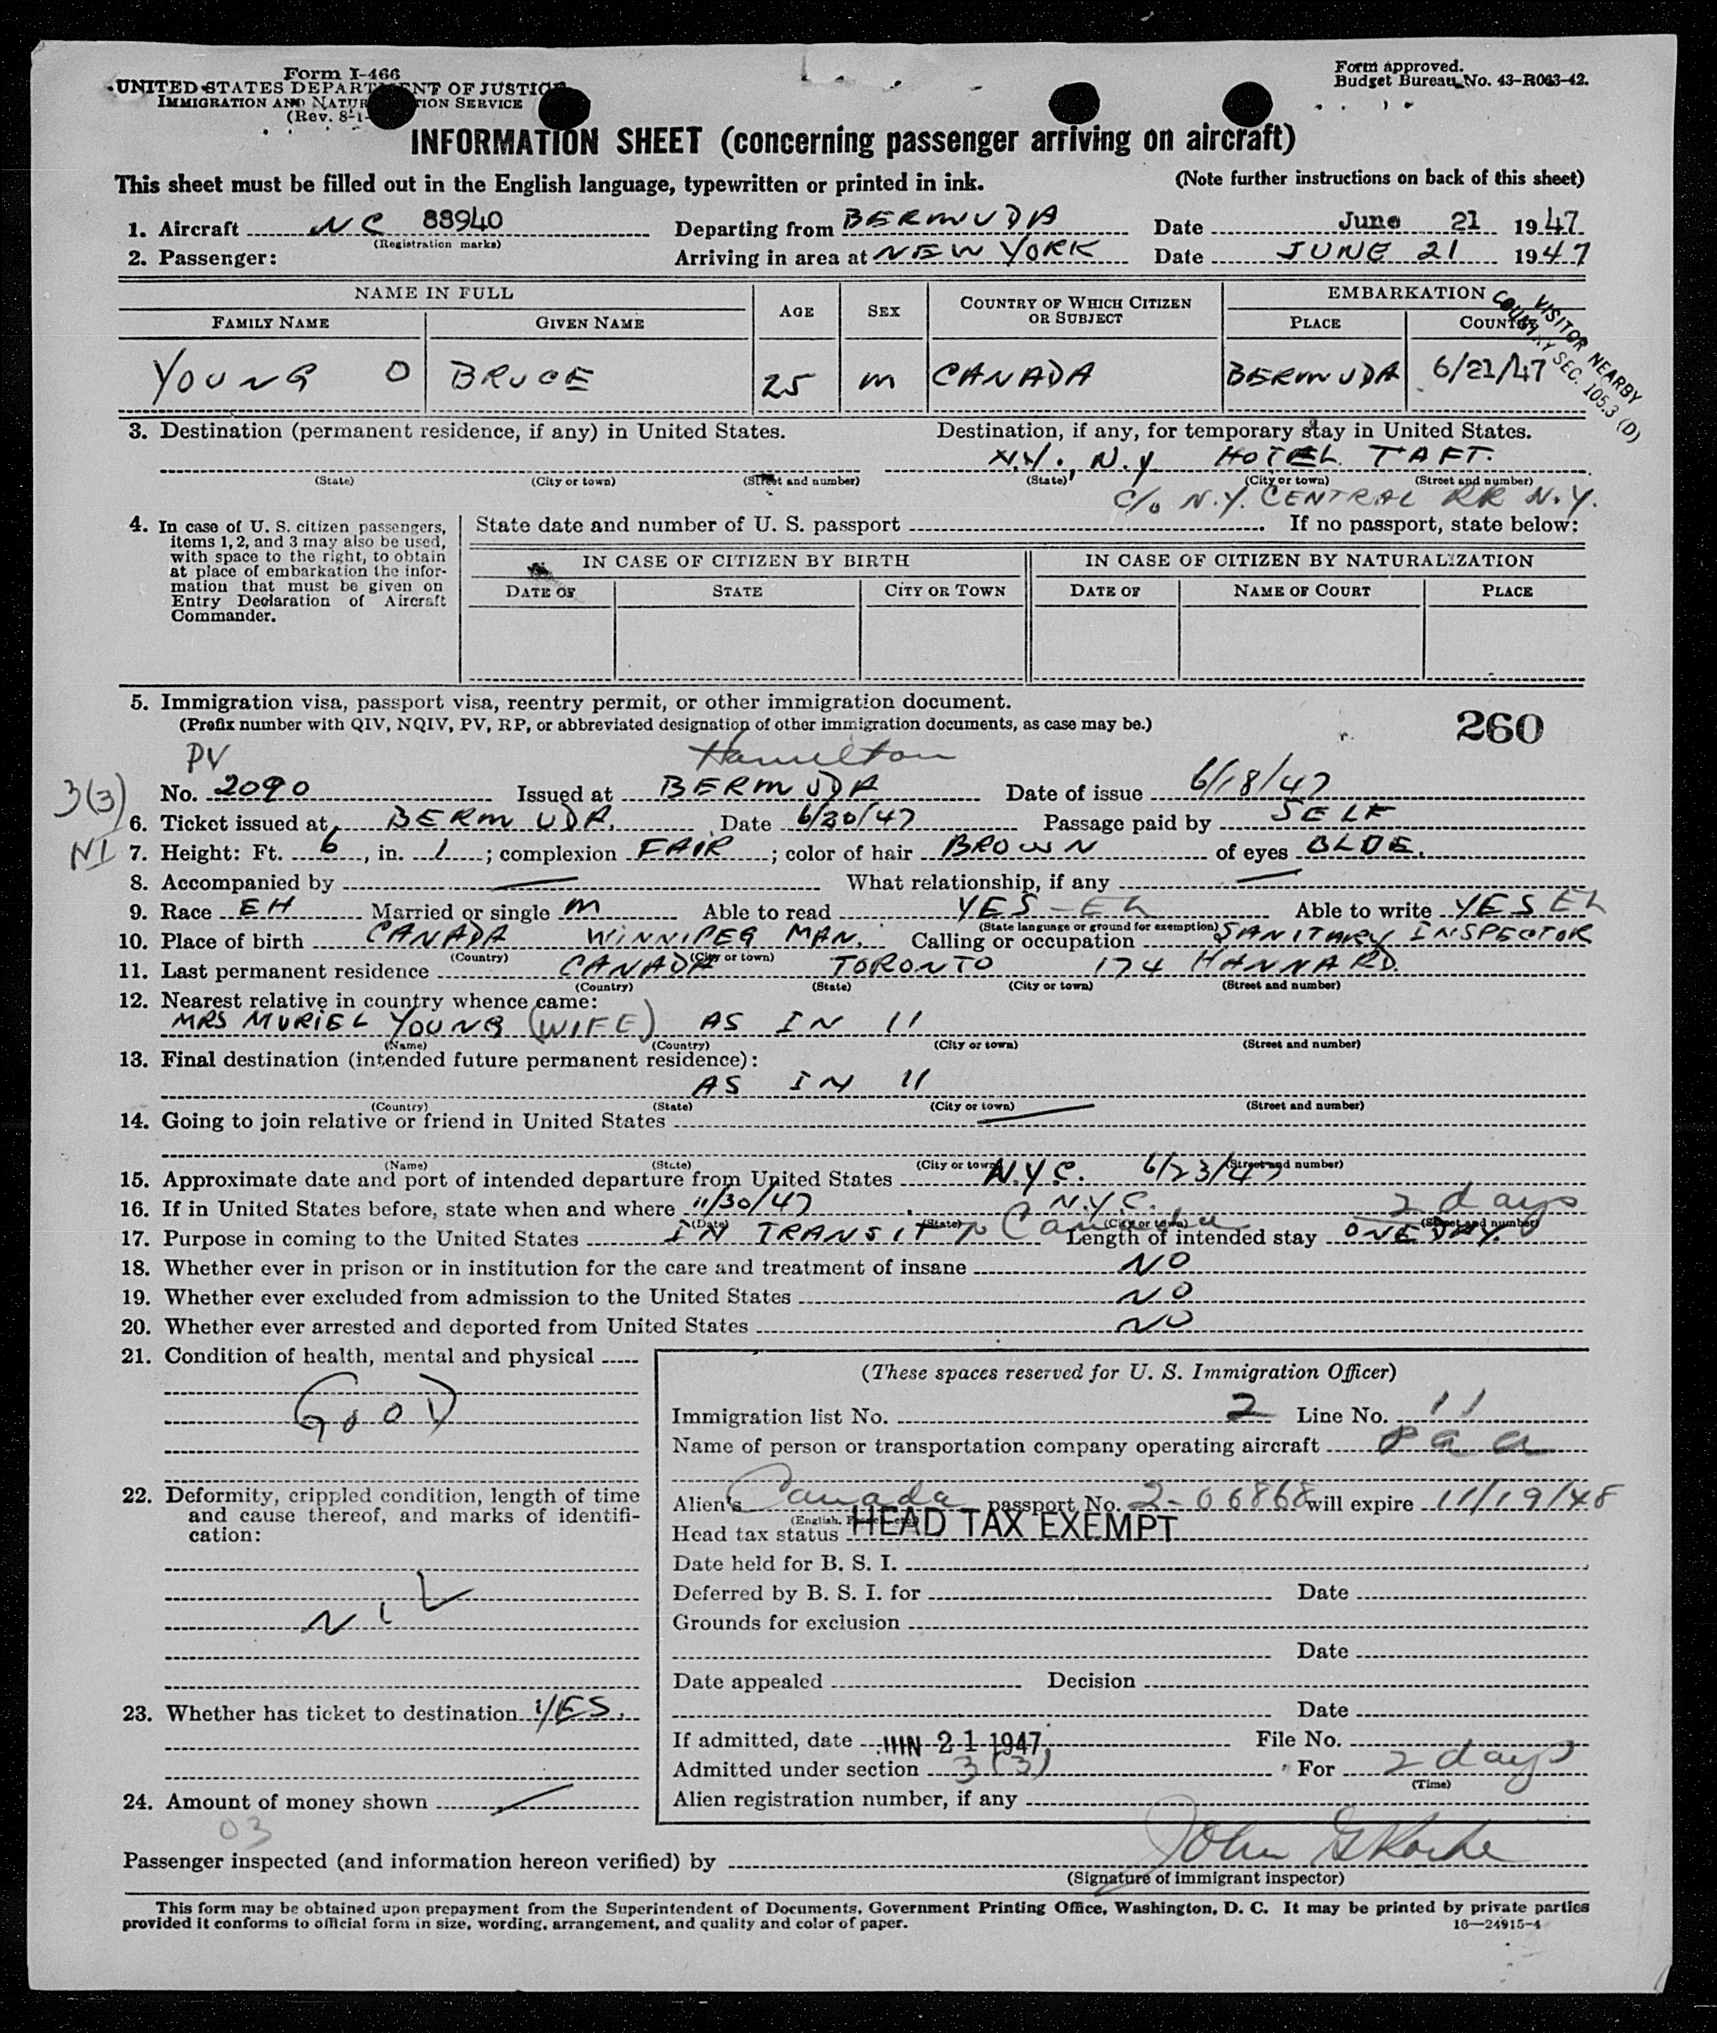 Form I-466
UNITED STATES DEPARTMENT OF JUSTICE
IMMIGRATION AND NATURALIZATION SERVICE
(Rev. 8-1-
Form approved.
Budget Bureau No. 43-R063-42.
INFORMATION SHEET (concerning passenger arriving on aircraft)
This sheet must be filled out in the English language, typewritten or printed in ink. (Note further instructions on back of this sheet)
1. Aircraft NC 88940 Departing from BERMUDA Date June 21 1947
(Registration marks)
2. Passenger: Arriving in area at NEW YORK Date JUNE 21 1947
NAME IN FULL AGE SEX COUNTRY OF WHICH CITIZEN OR SUBJECT EMBARKATION
FAMILY NAME GIVEN NAME PLACE COUNTRY
VISITOR NEARBY
COUNTRY SEC. 105.3 (D)
YOUNG O BRUCE 25 M CANADA BERMUDA 6/21/47
3. Destination (permanent residence, if any) in United States. Destination, if any, for temporary stay in United States.
N.Y., N.Y HOTEL TAFT.
(State) (City or town) (Street and number) (State) (City or town) (Street and number)
C/o N.Y. CENTRAL RR N.Y.
4. In case of U. S. citizen passengers,
items 1, 2, and 3 may also be used,
with space to the right, to obtain
at place of embarkation the infor-
mation that must be given on
Entry Declaration of Aircraft
Commander.
State date and number of U. S. passport If no passport, state below:
IN CASE OF CITIZEN BY BIRTH IN CASE OF CITIZEN BY NATURALIZATION
DATE OF STATE CITY OR TOWN DATE OF NAME OF COURT PLACE
5. Immigration visa, passport visa, reentry permit, or other immigration document.
(Prefix number with QIV, NQIV, PV, RP, or abbreviated designation of other immigration documents, as case may be.)
260
PV Hamilton
3(3) No. 2090 Issued at BERMUDA Date of issue 6/18/47
6. Ticket issued at BERMUDA. Date 6/20/47 Passage paid by SELF
NI 7. Height: Ft. 6, in. 1; complexion FAIR; color of hair BROWN of eyes BLUE.
8. Accompanied by — What relationship, if any —
9. Race EH Married or single M Able to read YES - EL Able to write YES EL
(State language or ground for exemption)
10. Place of birth CANADA WINNIPEG MAN. Calling or occupation SANITARY INSPECTOR
(Country) (City or town)
11. Last permanent residence CANADA TORONTO 174 HANNA RD.
(Country) (State) (City or town) (Street and number)
12. Nearest relative in country whence came:
MRS MURIEL YOUNG (WIFE) AS IN 11
(Name) (Country) (City or town) (Street and number)
13. Final destination (intended future permanent residence):
AS IN 11
(Country) (State) (City or town) (Street and number)
14. Going to join relative or friend in United States —
(Name) (State) (City or town) (Street and number)
15. Approximate date and port of intended departure from United States N.Y.C. 6/23/47
16. If in United States before, state when and where 11/30/47 N.Y.C. 2 days
(Date) (State) (City or town) (Street and number)
17. Purpose in coming to the United States IN TRANSIT to Canada Length of intended stay ONE DAY.
18. Whether ever in prison or in institution for the care and treatment of insane NO
19. Whether ever excluded from admission to the United States NO
20. Whether ever arrested and deported from United States NO
21. Condition of health, mental and physical
GOOD
22. Deformity, crippled condition, length of time
and cause thereof, and marks of identifi-
cation:
NIL
23. Whether has ticket to destination YES.
24. Amount of money shown —
03
(These spaces reserved for U. S. Immigration Officer)
Immigration list No. 2 Line No. 11
Name of person or transportation company operating aircraft P a a
Alien's Canada passport No. 2-06868 will expire 11/19/48
Head tax status HEAD TAX EXEMPT
Date held for B. S. I.
Deferred by B. S. I. for Date
Grounds for exclusion
Date
Date appealed Decision
Date
If admitted, date JUN 21 1947 File No.
Admitted under section 3(3) For 2 days
(Time)
Alien registration number, if any
Passenger inspected (and information hereon verified) by John
(Signature of immigrant inspector)
This form may be obtained upon prepayment from the Superintendent of Documents, Government Printing Office, Washington, D. C. It may be printed by private parties
provided it conforms to official form in size, wording, arrangement, and quality and color of paper. 16—24915-4